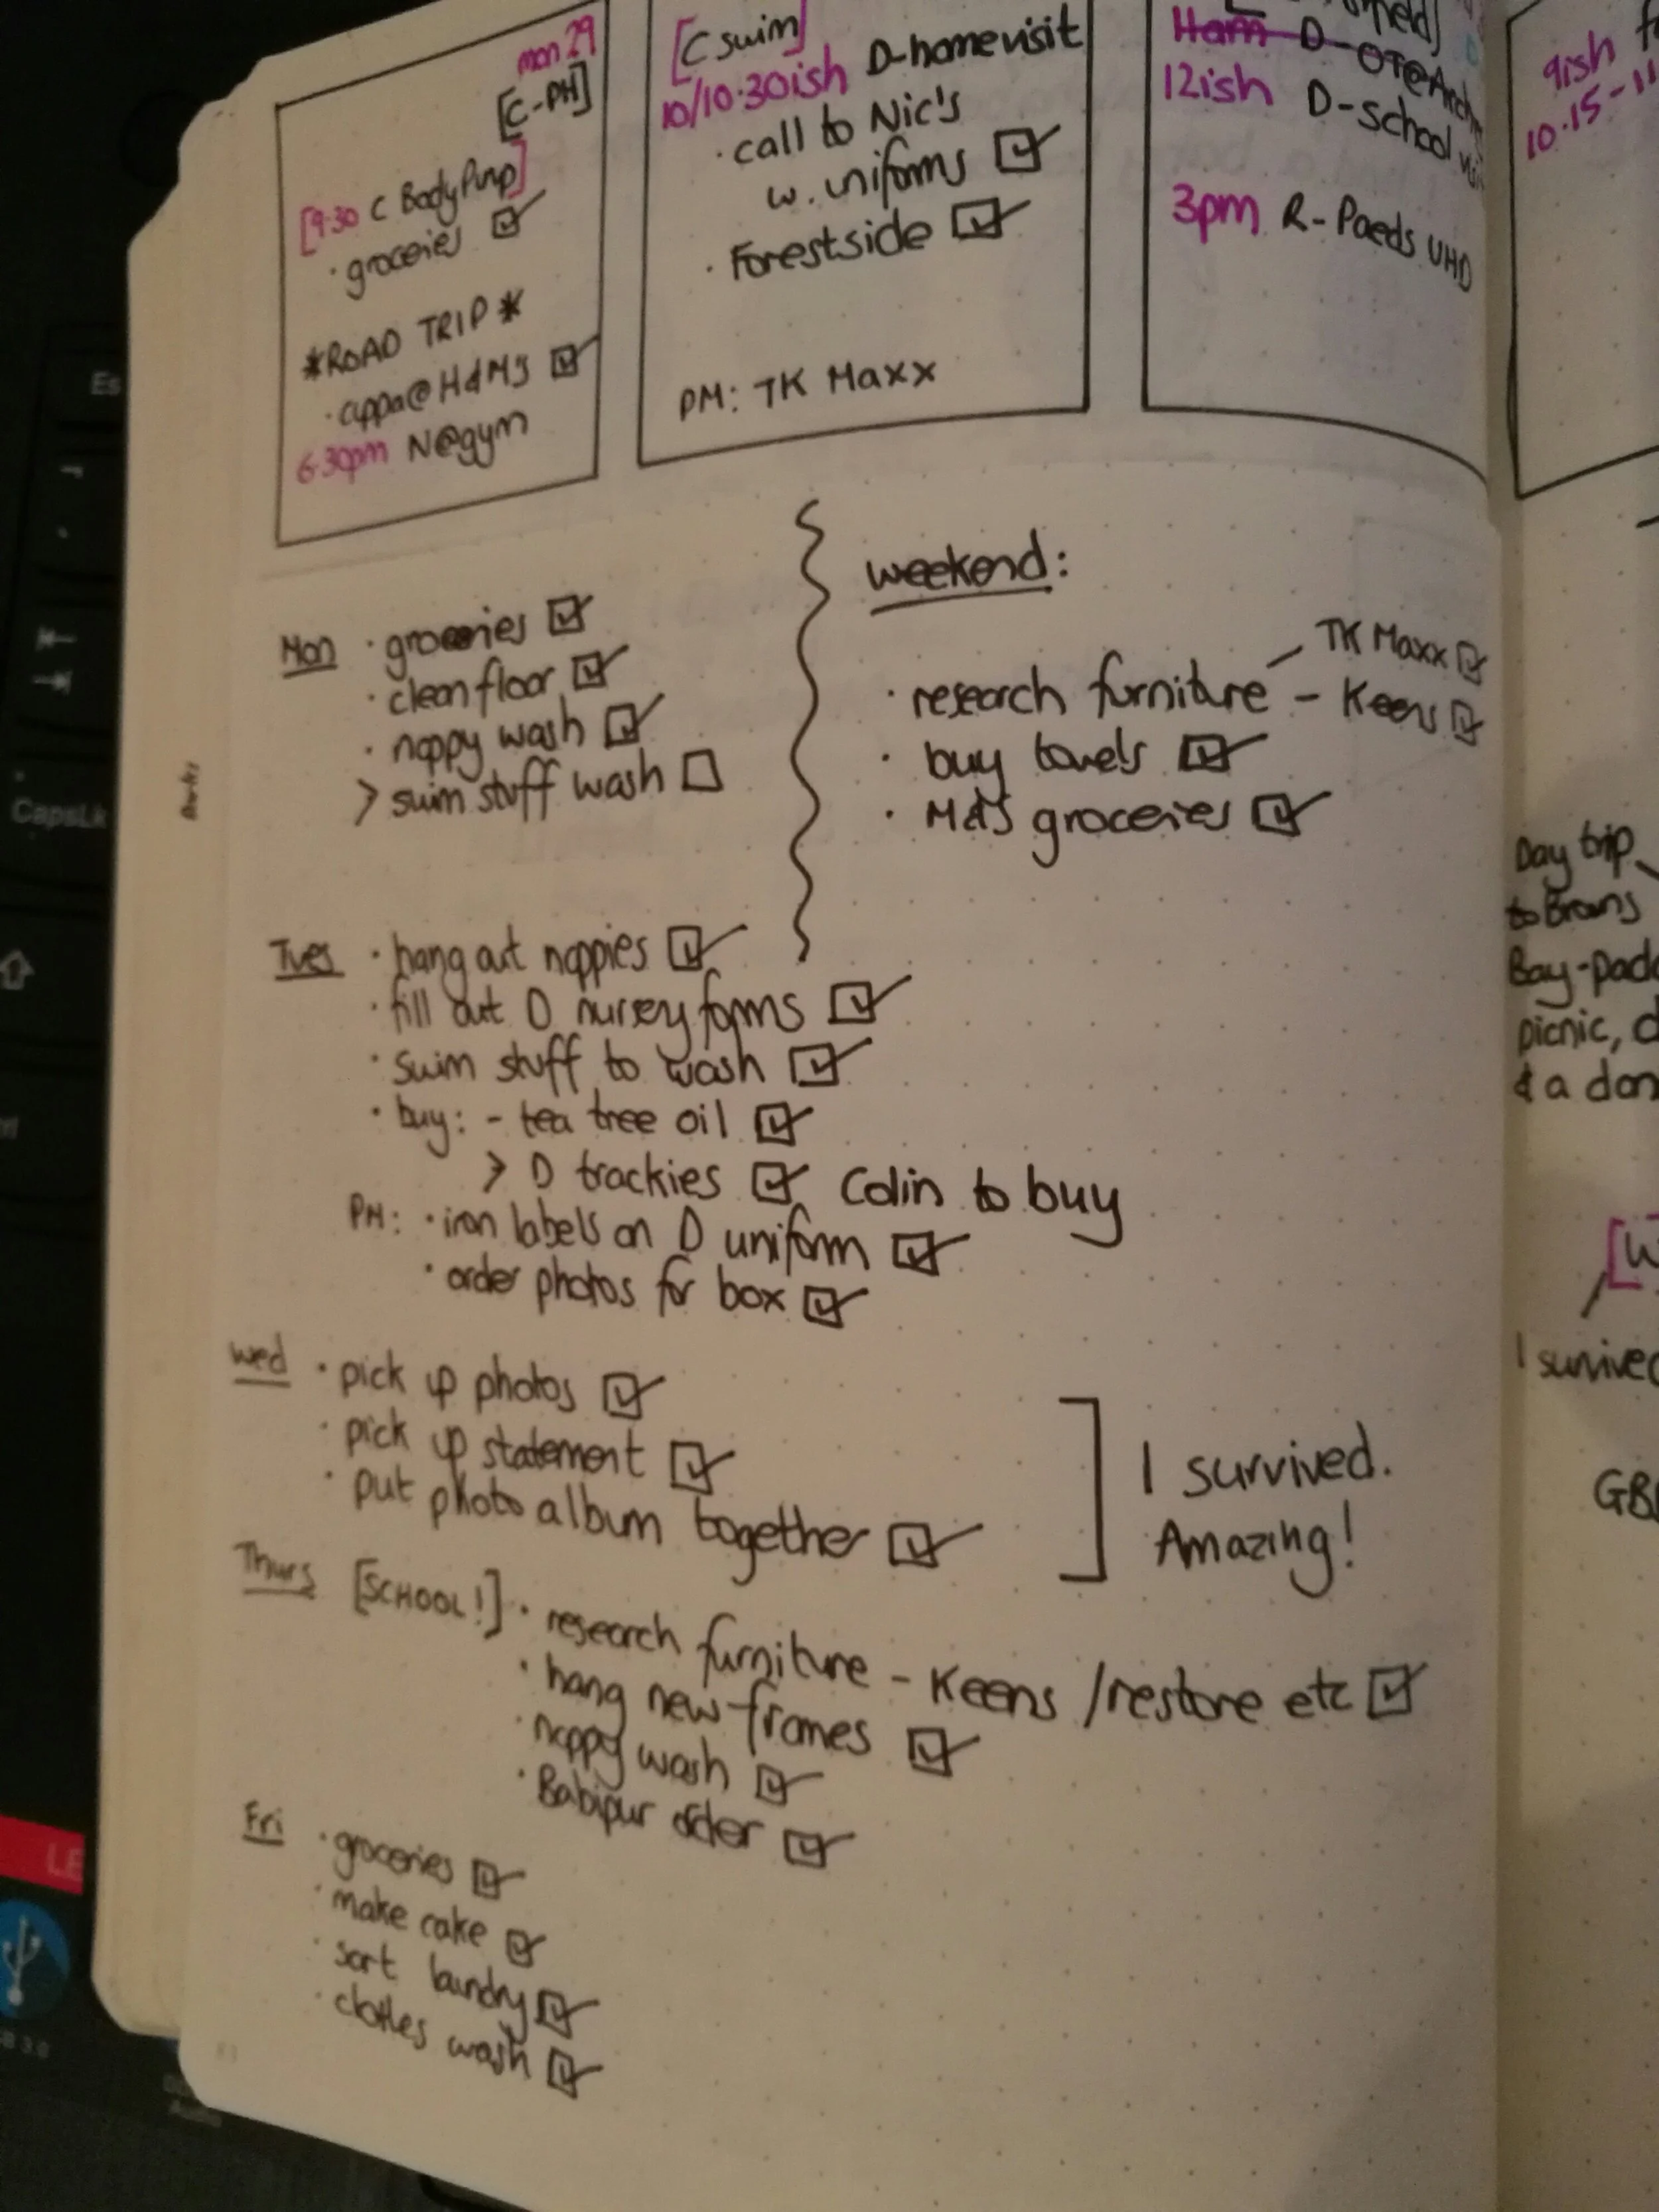 mon 29
[C-PH]
[9.30 C BodyPump]
· groceries
*ROAD TRIP*
· cuppa@H&MJ
6.30pm N@gym
[C swim]
10/10.30ish D-home visit
· call to Nic's
w. uniforms
· Forestside
PM: TK Maxx
11am D-OT@Arch
12ish D-school
3pm R-Paeds UHD
9ish
10.15-11
Mon · groceries
· clean floor
· nappy wash
> swim stuff wash
weekend:
TK Maxx
· research furniture - Keens
· buy towels
· M&S groceries
Tues · hang out nappies
· fill out D nursery forms
· swim stuff to wash
· buy: - tea tree oil
> D trackies Colin to buy
PM: · iron labels on D uniform
· order photos for box
Wed · pick up photos
· pick up statement
· put photo album together
I survived.
Amazing!
Thurs [SCHOOL!] · research furniture - Keens /restore etc
· hang new frames
· nappy wash
· Babipur order
Fri · groceries
· make cake
· sort laundry
· clothes wash
Day trip
to Browns
Bay-pack
picnic,
& a
I survived
Es
CapsLk